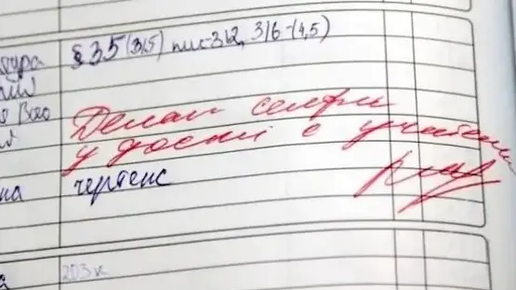 §35(3,5) пис-312, 316-(4,5)
Делал селфи
у доски с учителем
чертеж
203к